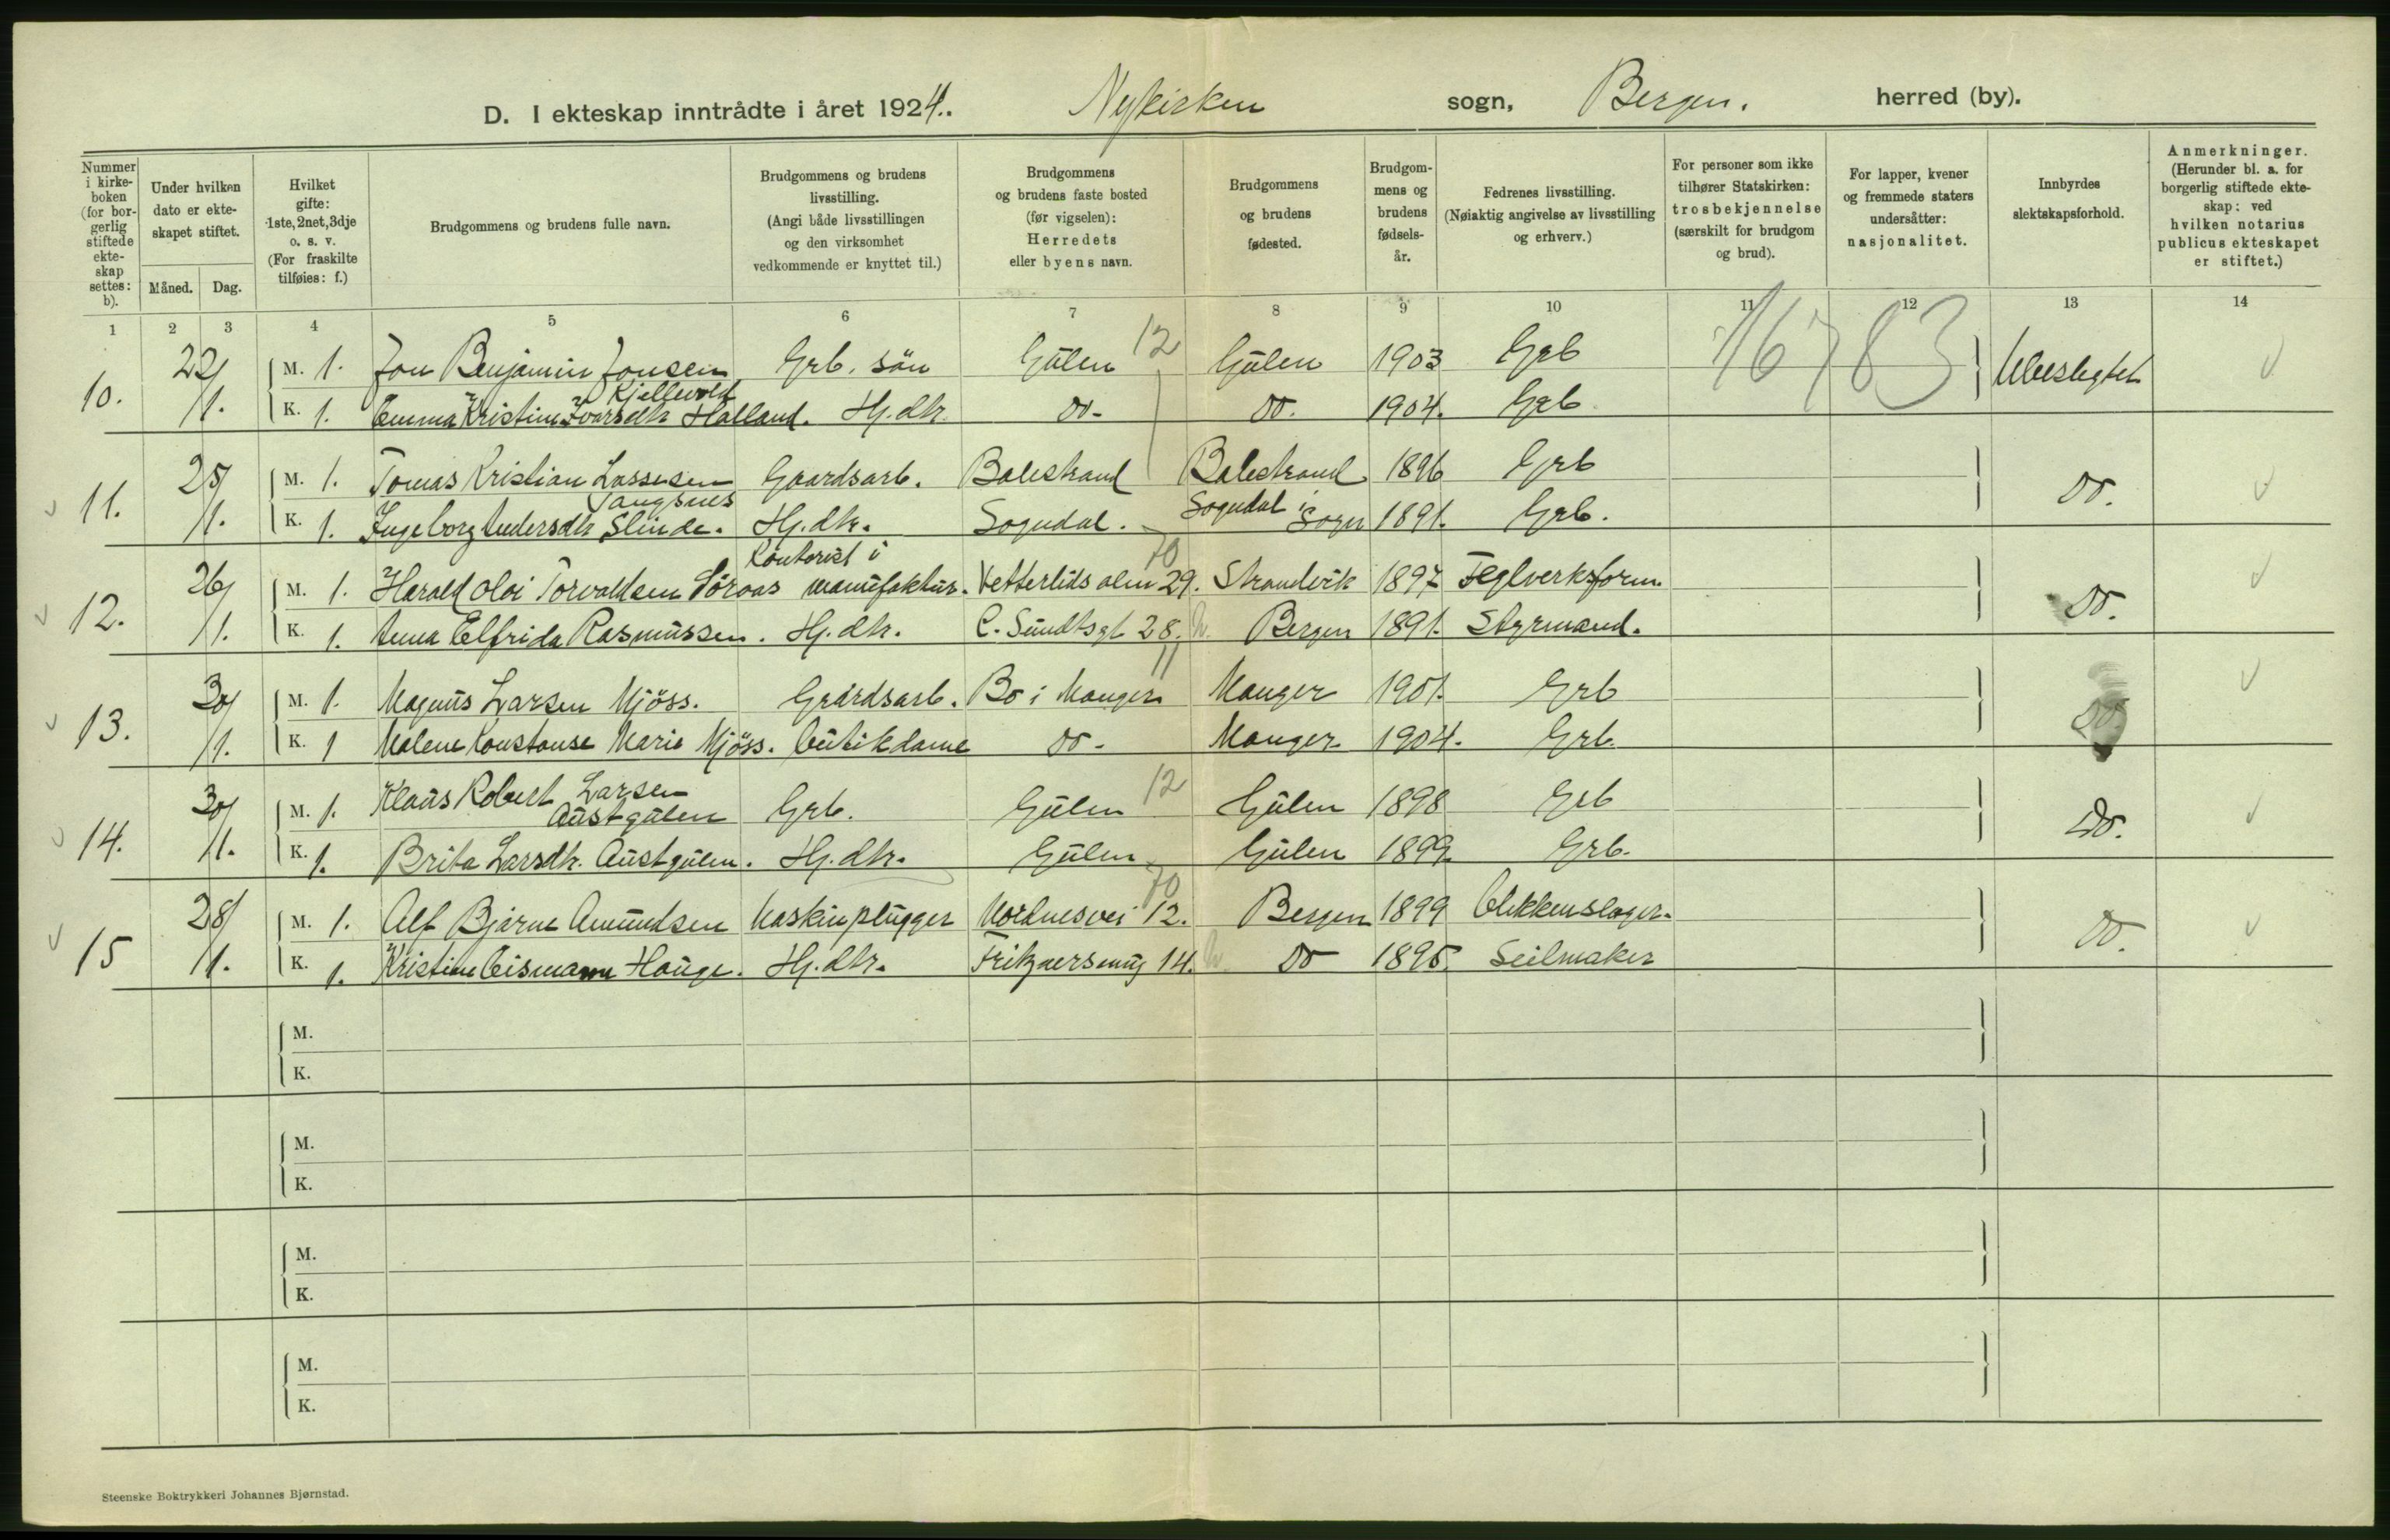 D. I ekteskap inntrådte i året 1924. Nykirken sogn, Bergen. herred (by).
Nummer i kirke-boken (for bor-gerlig stiftede ekte-skap settes: b).
Under hvilken dato er ekte-skapet stiftet.
Måned. Dag.
Hvilket gifte: 1ste, 2net, 3dje o. s. v. (For fraskilte tilføies: f.)
Brudgommens og brudens fulle navn.
Brudgommens og brudens livsstilling. (Angi både livsstillingen og den virksomhet vedkommende er knyttet til.)
Brudgommens og brudens faste bosted (før vigselen): Herredets eller byens navn.
Brudgommens og brudens fødested.
Brudgom-mens og brudens fødsels-år.
Fedrenes livsstilling. (Nøiaktig angivelse av livsstilling og erhverv.)
For personer som ikke tilhører Statskirken: trosbekjennelse (særskilt for brudgom og brud).
For lapper, kvener og fremmede staters undersåtter: nasjonalitet.
Innbyrdes slektskapsforhold.
Anmerkninger. (Herunder bl. a. for borgerlig stiftede ekte-skap: ved hvilken notarius publicus ekteskapet er stiftet.)
1 2 3 4 5 6 7 8 9 10 11 12 13 14
10. 22/1. M. 1. Jon Benjamin Jonsen Kjellevold Grb. sön Gülen 12 Gülen 1903 Grb 16783 Ubeslegtet
K. 1. Emma Kristine Ivarsdtr Halland. Hj. dtr. Do- Do. 1904. Grb.
11. 25/1. M. 1. Tomas Kristian Lassesen Tangsnes Gaardsarb. Balestrand Balestrand 1896 Grb Do.
K. 1. Ingeborg Andersdtr Slinde. Hj. dtr. Sogndal. Sogndal i Sogn 1891. Grb.
12. 26/1. M. 1. Harald Olai Torvaldsen Söraas Kontorist i manufaktur. Vetterlids alm 29. 70 Strandvik 1897 Teglverksform. Do.
K. 1. Anna Elfrida Rasmussen. Hj. dtr. C. Sundtsgt 28. Bergen 1891. Styrmand.
13. 30/1. M. 1. Magnus Larsen Mjöss. Gaardsarb. Bo i Manger 11 Manger 1901. Grb Do.
K. 1 Malene Konstanse Marie Mjöss. Butikdame Do- Manger 1904. Grb.
14. 30/1. M. 1. Klaus Robert Larsen Austgulen Grb. Gülen 12 Gülen 1898 Grb Do.
K. 1. Brita Larsdtr. Austgulen. Hj. dtr. Gülen Gülen 1899. Grb.
15 28/1. M. 1. Alf Bjarne Amundsen Maskinplugger Nordnesvei 12. 70 Bergen 1899 Blikkenslager. Do.
K. 1. Kristine Eismann Hauge. Hj. dtr. 14. Do 1895. Seilmaker
M.
K.
M.
K.
M.
K.
M.
K.
Steenske Boktrykkeri Johannes Bjørnstad.